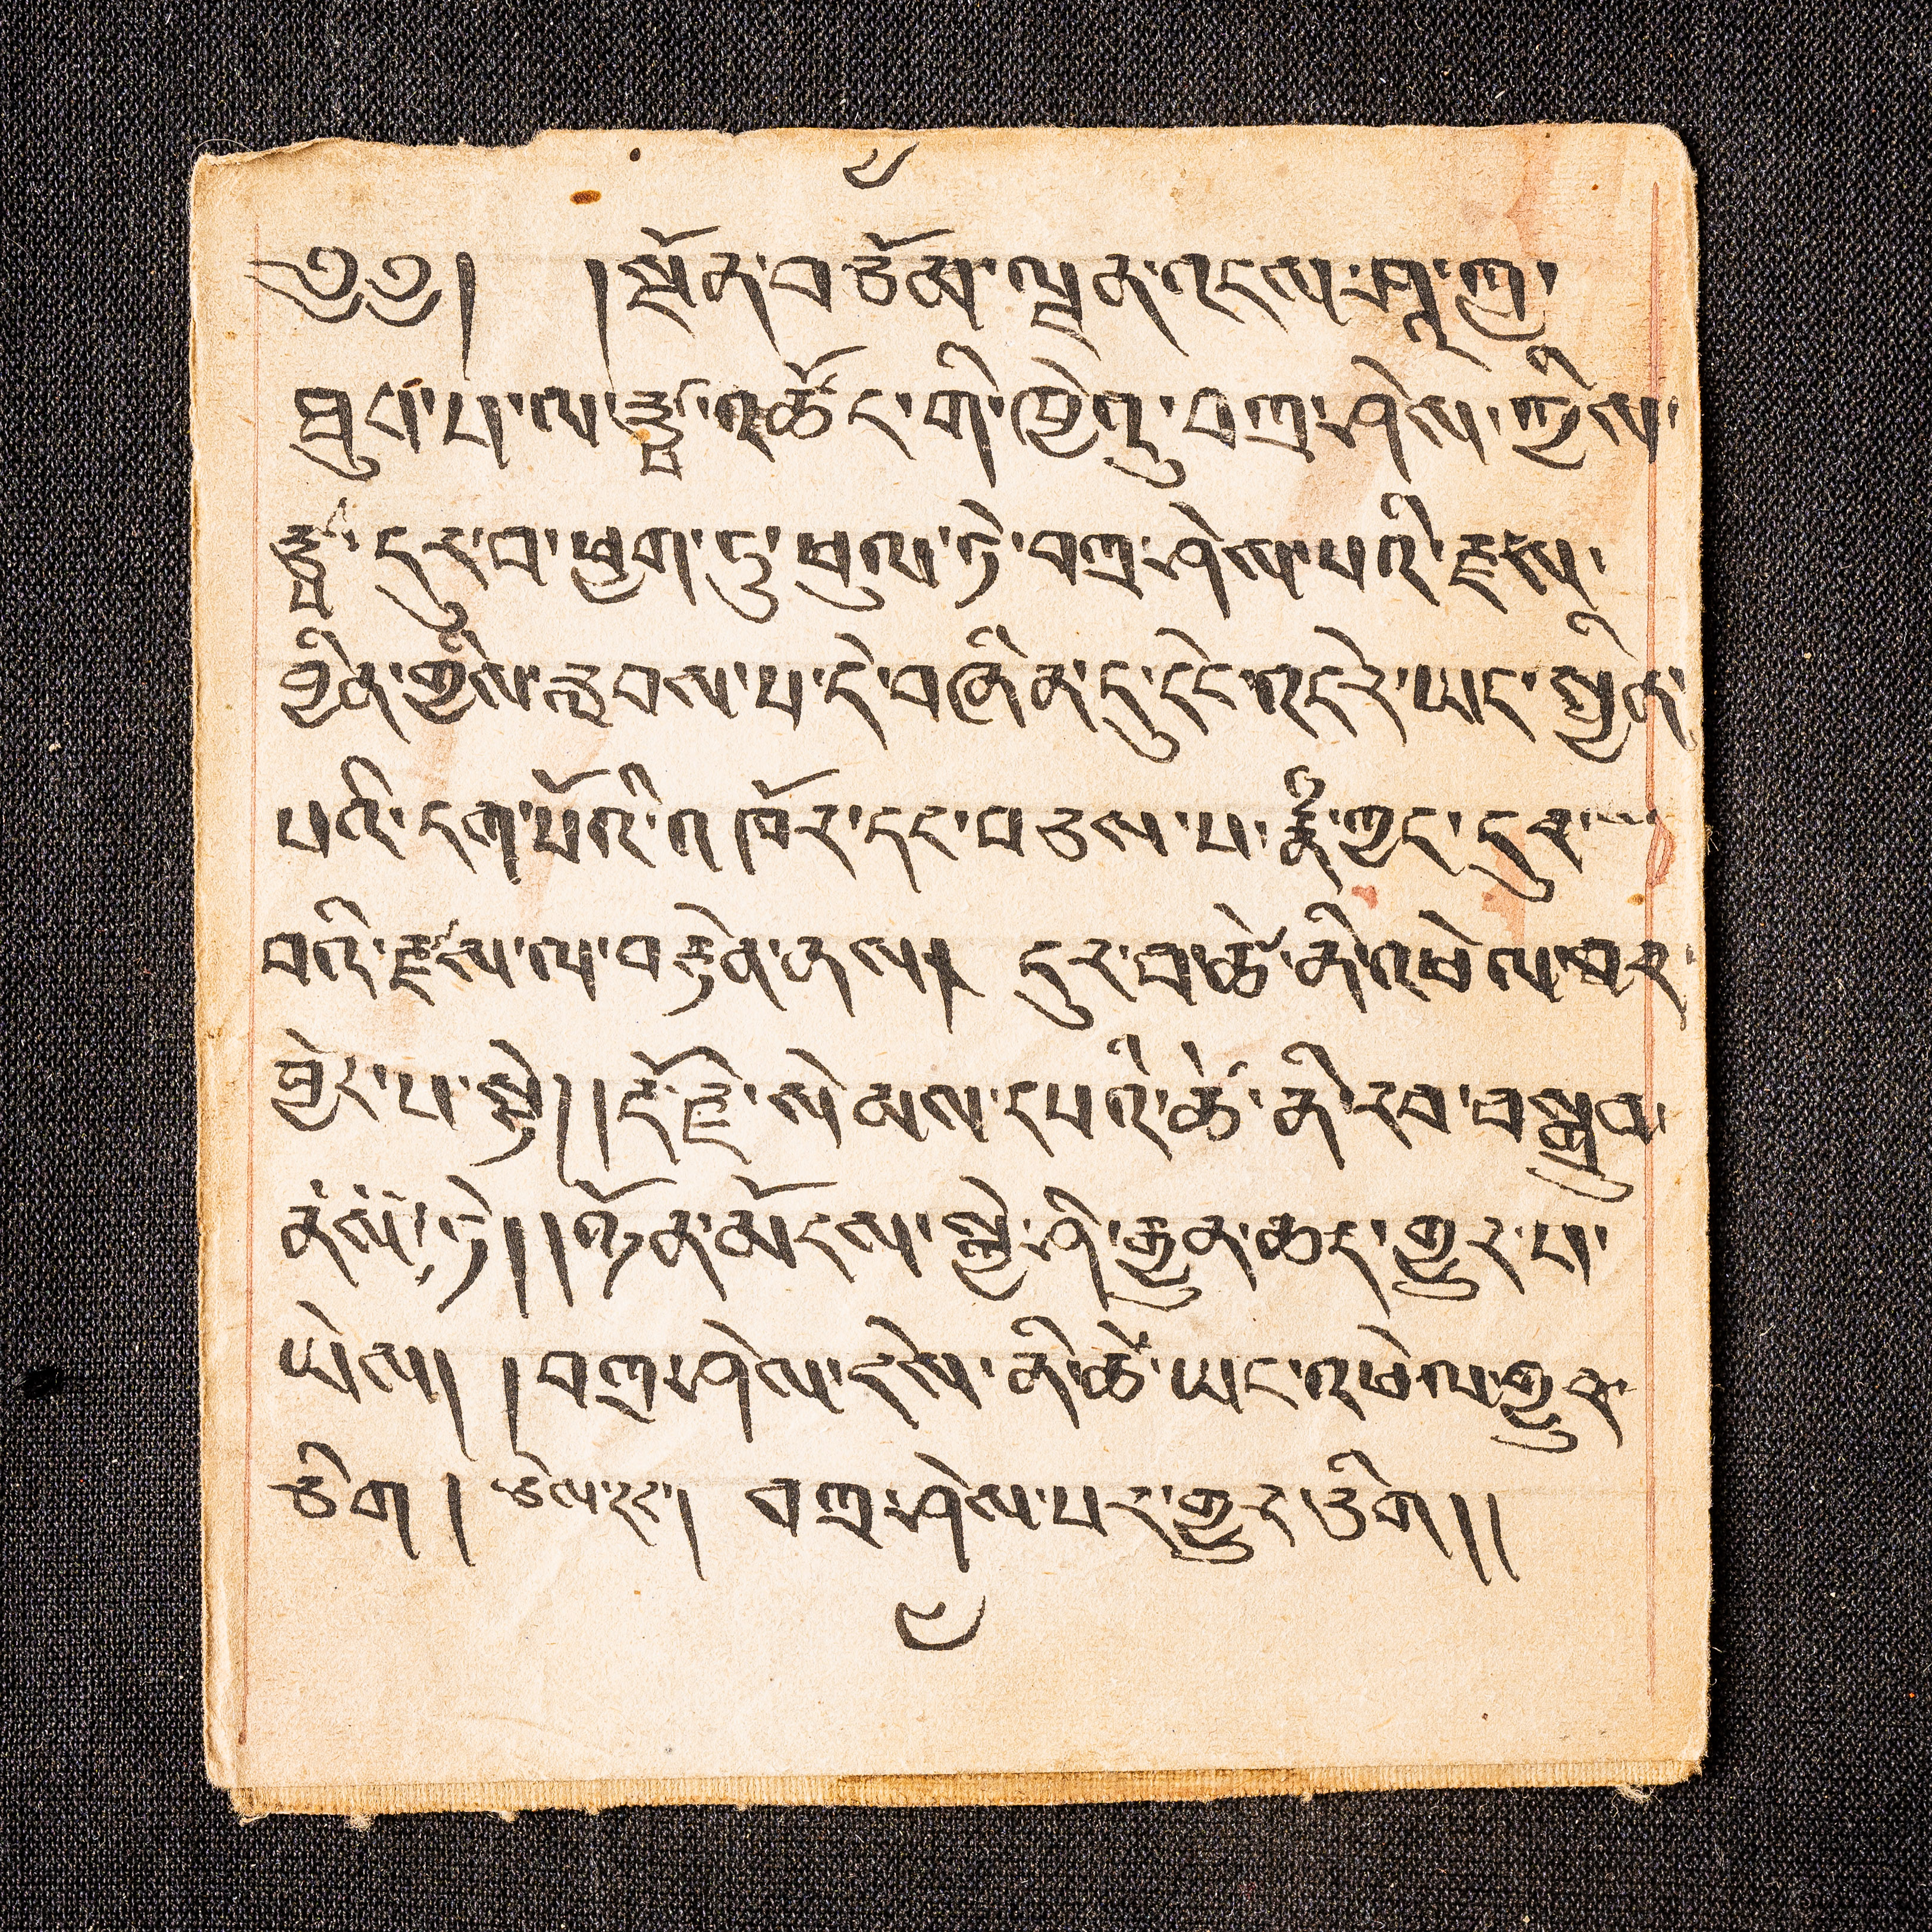 ༄༅། །སྔོན་བཅོམ་ལྡན་འདས་ཤཱཀྱ་
ཐུབ་པ་ལ་རྩྭ་འཚོང་གི་ཁྱེའུ་བཀྲ་ཤིས་ཀྱིས་
རྩྭ་དུར་བ་ཕྱག་ཏུ་ཕུལ་ཏེ་བཀྲ་ཤིས་པའི་རྫས་
བྱིན་གྱིས་རླབས་པ་དེ་བཞིན་དུ་དེང་འདིར་ཡང་སྦྱིན་
པའི་བདག་པོའི་འཁོར་དང་བཅས་པ་རྣི་ཀྱང་དུར་
བའི་རྫས་ལ་བརྟེན་ནས། དུར་བ་ཚེ་ནི་འཕེལ་བར་
བྱེད་པ་སྟེ།།རྡོ་རྗེ་སེམས་དཔའི་ཚེ་ནི་རབ་བསྒྲུབ་
ནས་ཏེ།།ཉོན་མོངས་སྐྱེ་ཤི་རྒྱུན་ཆད་གྱུར་པ་
ཡིས། །བཀྲ་ཤིས་དེས་ནི་ཚེ་ཡང་འཕེལ་གྱུར་
ཅིག། ཅེས་དང་། བཀྲ་ཤིས་པར་གྱུར་ཅིག།།